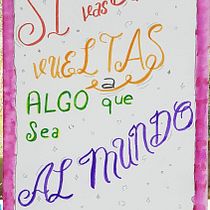 SI vas
VUELTAS
a
ALGO que
Sea
AL MUNDO